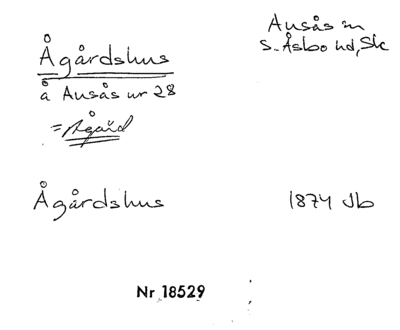 Ågårdshus
Ausås sn
S. Åsbo hd, Sk
å Ausås nr 28
= Ågård
Ågårdshus 1874 Jb
Nr 18529